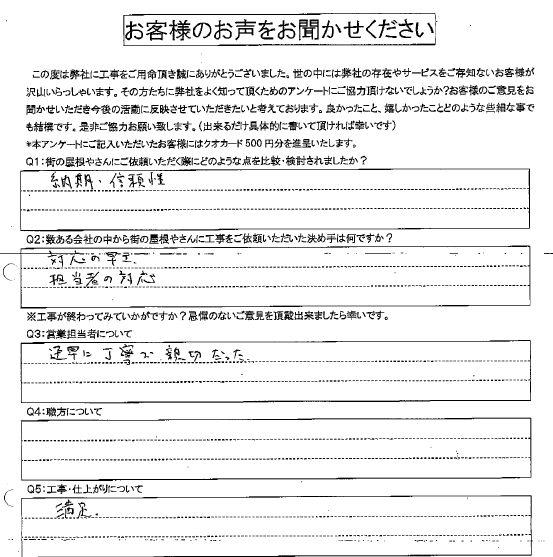 お客様のお声をお聞かせください
この度は弊社に工事をご用命頂き誠にありがとうございました。世の中には弊社の存在やサービスをご存知ないお客様が
沢山いらっしゃいます。その方たちに弊社をよく知って頂くためのアンケートにご協力頂けないでしょうか?お客様のご意見をお
聞かせいただき今後の活動に反映させていただきたいと考えております。良かったこと、嬉しかったことどのような些細な事で
も結構です。是非ご協力お願い致します。(出来るだけ具体的に書いて頂ければ幸いです)
*本アンケートにご記入いただいたお客様にはクオカード500円分を進呈いたします。
Q1:街の屋根やさんにご依頼いただく際にどのような点を比較・検討されましたか?
納期・信頼性
Q2:数ある会社の中から街の屋根やさんに工事をご依頼いただいた決め手は何ですか?
対応の早さ
担当者の対応
※工事が終わってみていかがですか?忌憚のないご意見を頂戴出来ましたら幸いです。
Q3:営業担当者について
丁寧で親切だった
Q4:職方について
Q5:工事・仕上がりについて
満足。